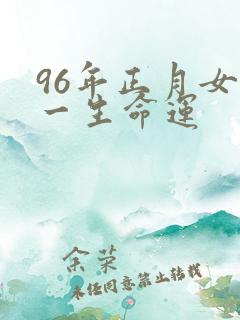 96年正月女
一生命运
余荣
未经同意禁止转载